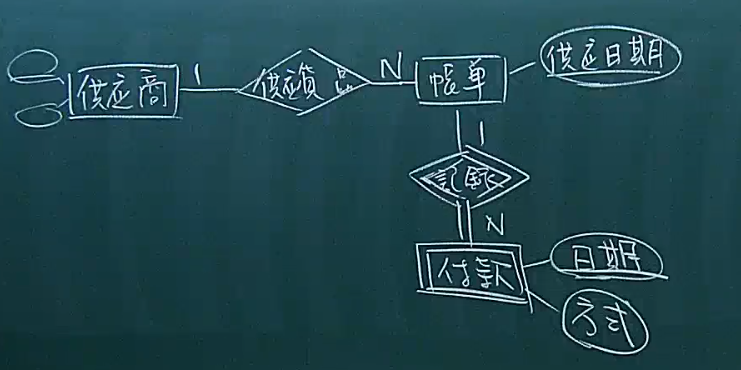 供应商
1
供应貨品
N
帳单
供应日期
1
記錄
N
付款
日期
方式